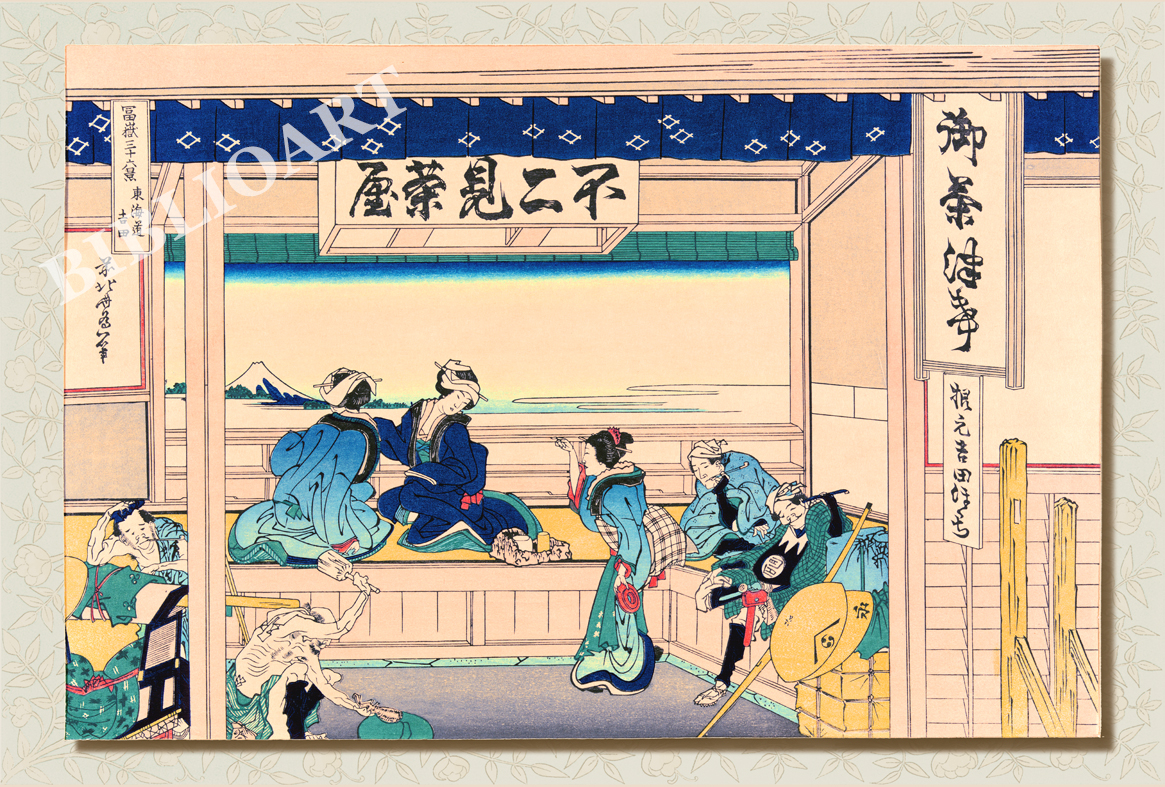 御茶津希
根元吉田ほくち
不二見茶屋
冨嶽三十六景
東海道
吉田
前北斎為一筆
BIBLIOART